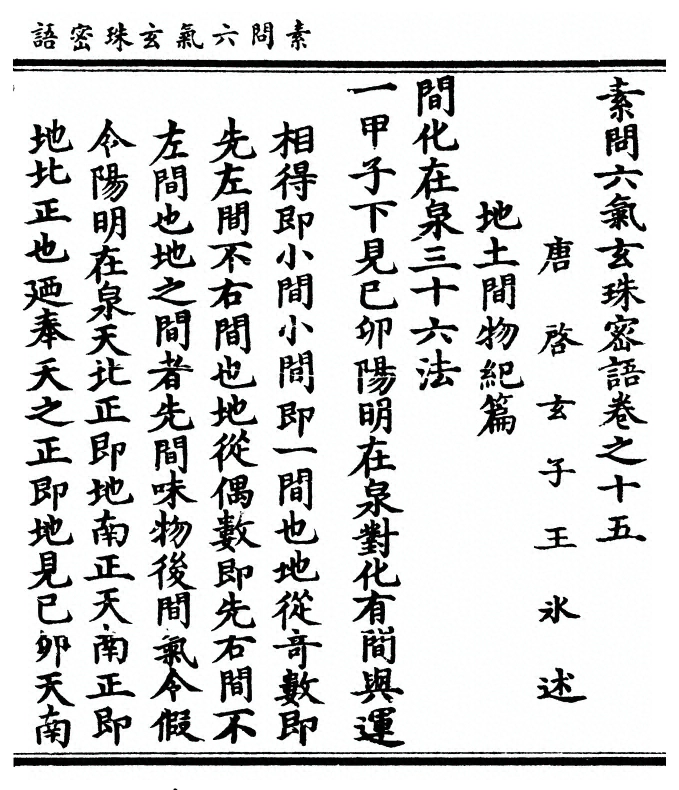 素問六氣玄珠密語
素問六氣玄珠密語卷之十五
唐啓玄子王氷述
地土間物紀篇
間化在泉三十六法
一甲子下見己卯陽明在泉對化有間與運
相得即小間小間即一間也地從竒數即
先左間不右間也地從偶數即先右間不
左間也地之間者先間味物後間氣令假
令陽明在泉天北正即地南正天南正即
地北正也廼奉天之正即地見己卯天南